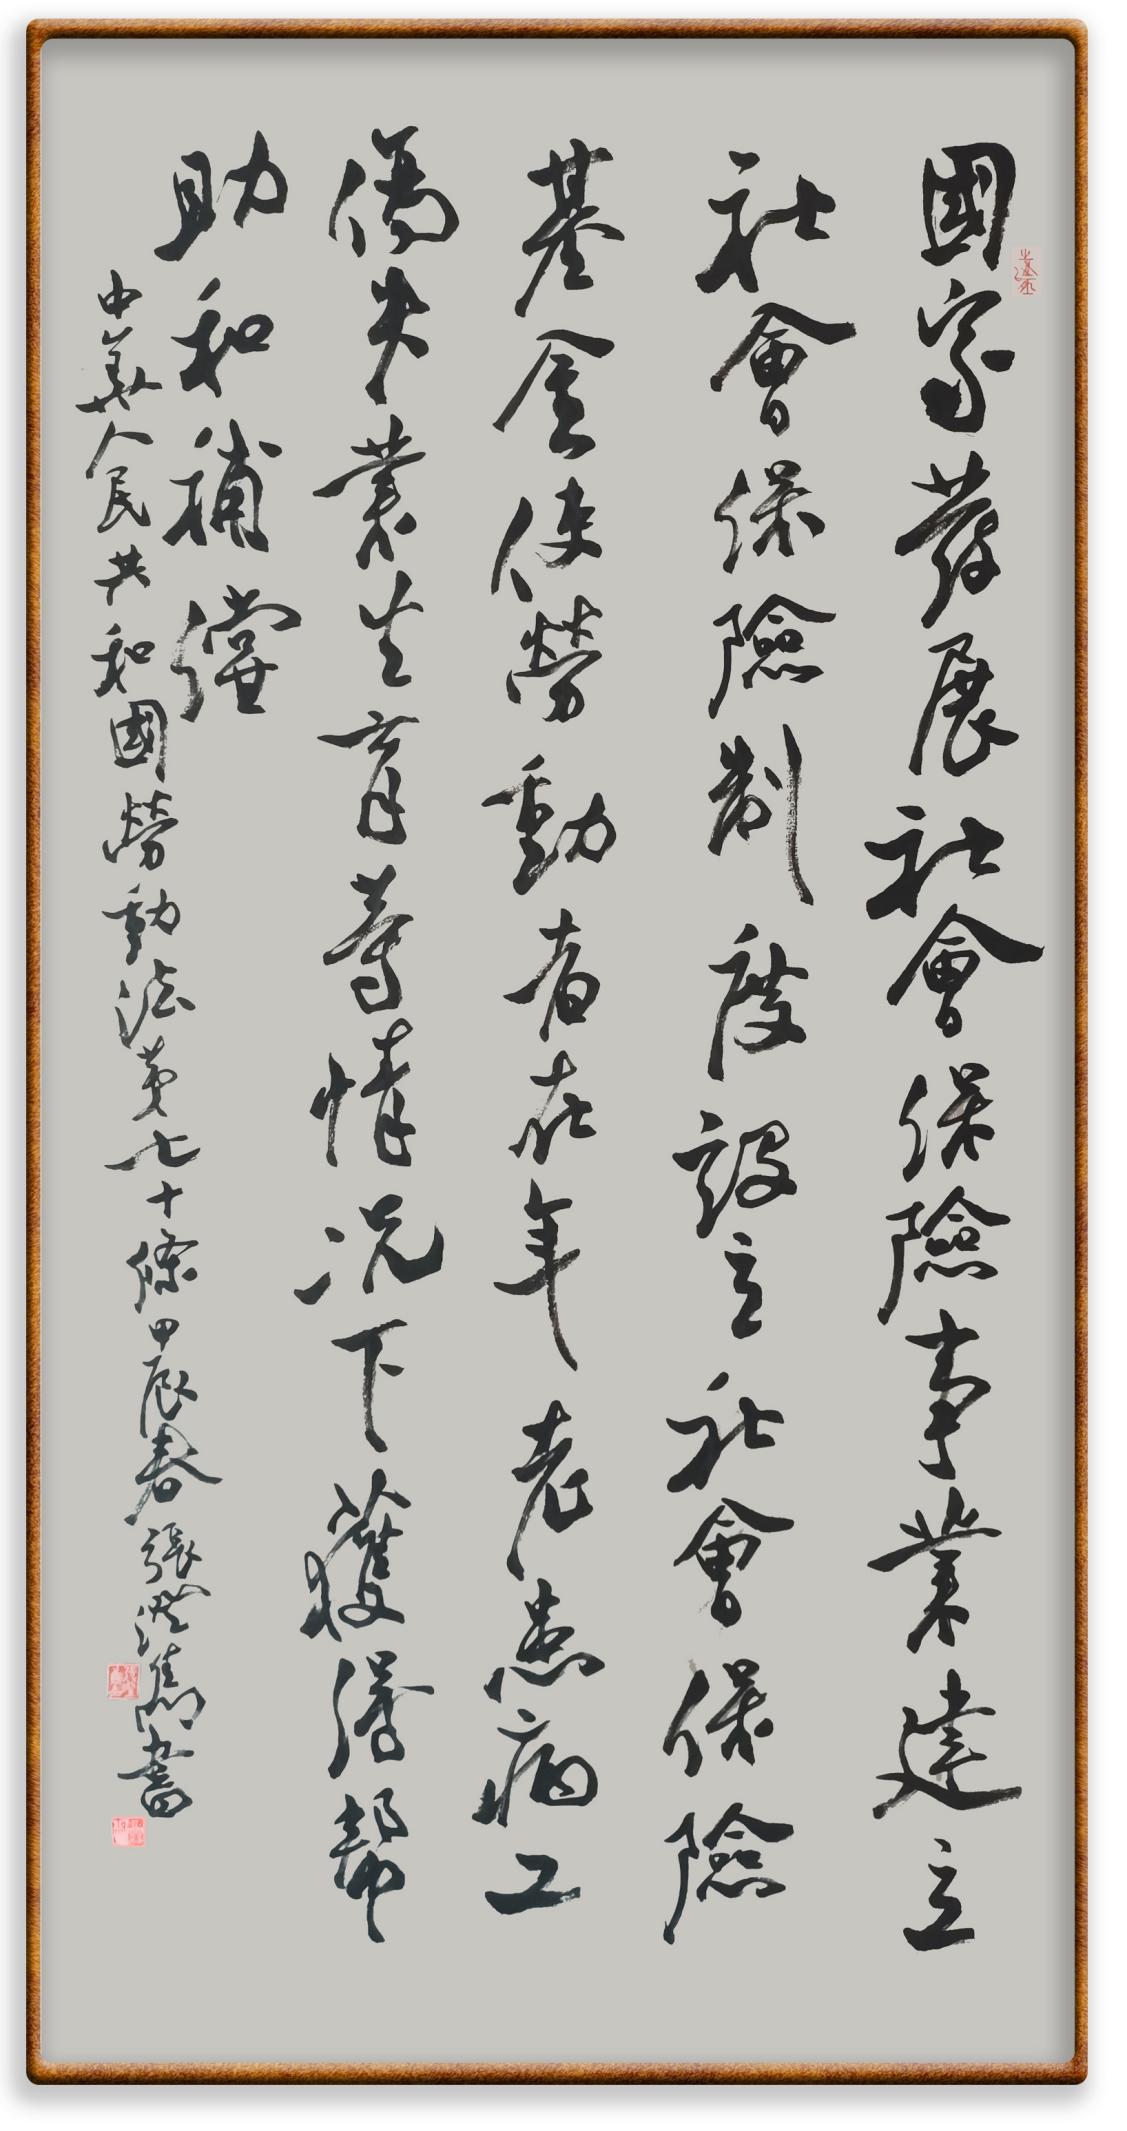 國家發展社會保險事業建立
社會保險制度設立社會保險
基金使勞動者在年老患病工
傷失業生育等情况下獲得幫
助和補償
中華人民共和國勞動法第七十條甲辰春張洪雋書